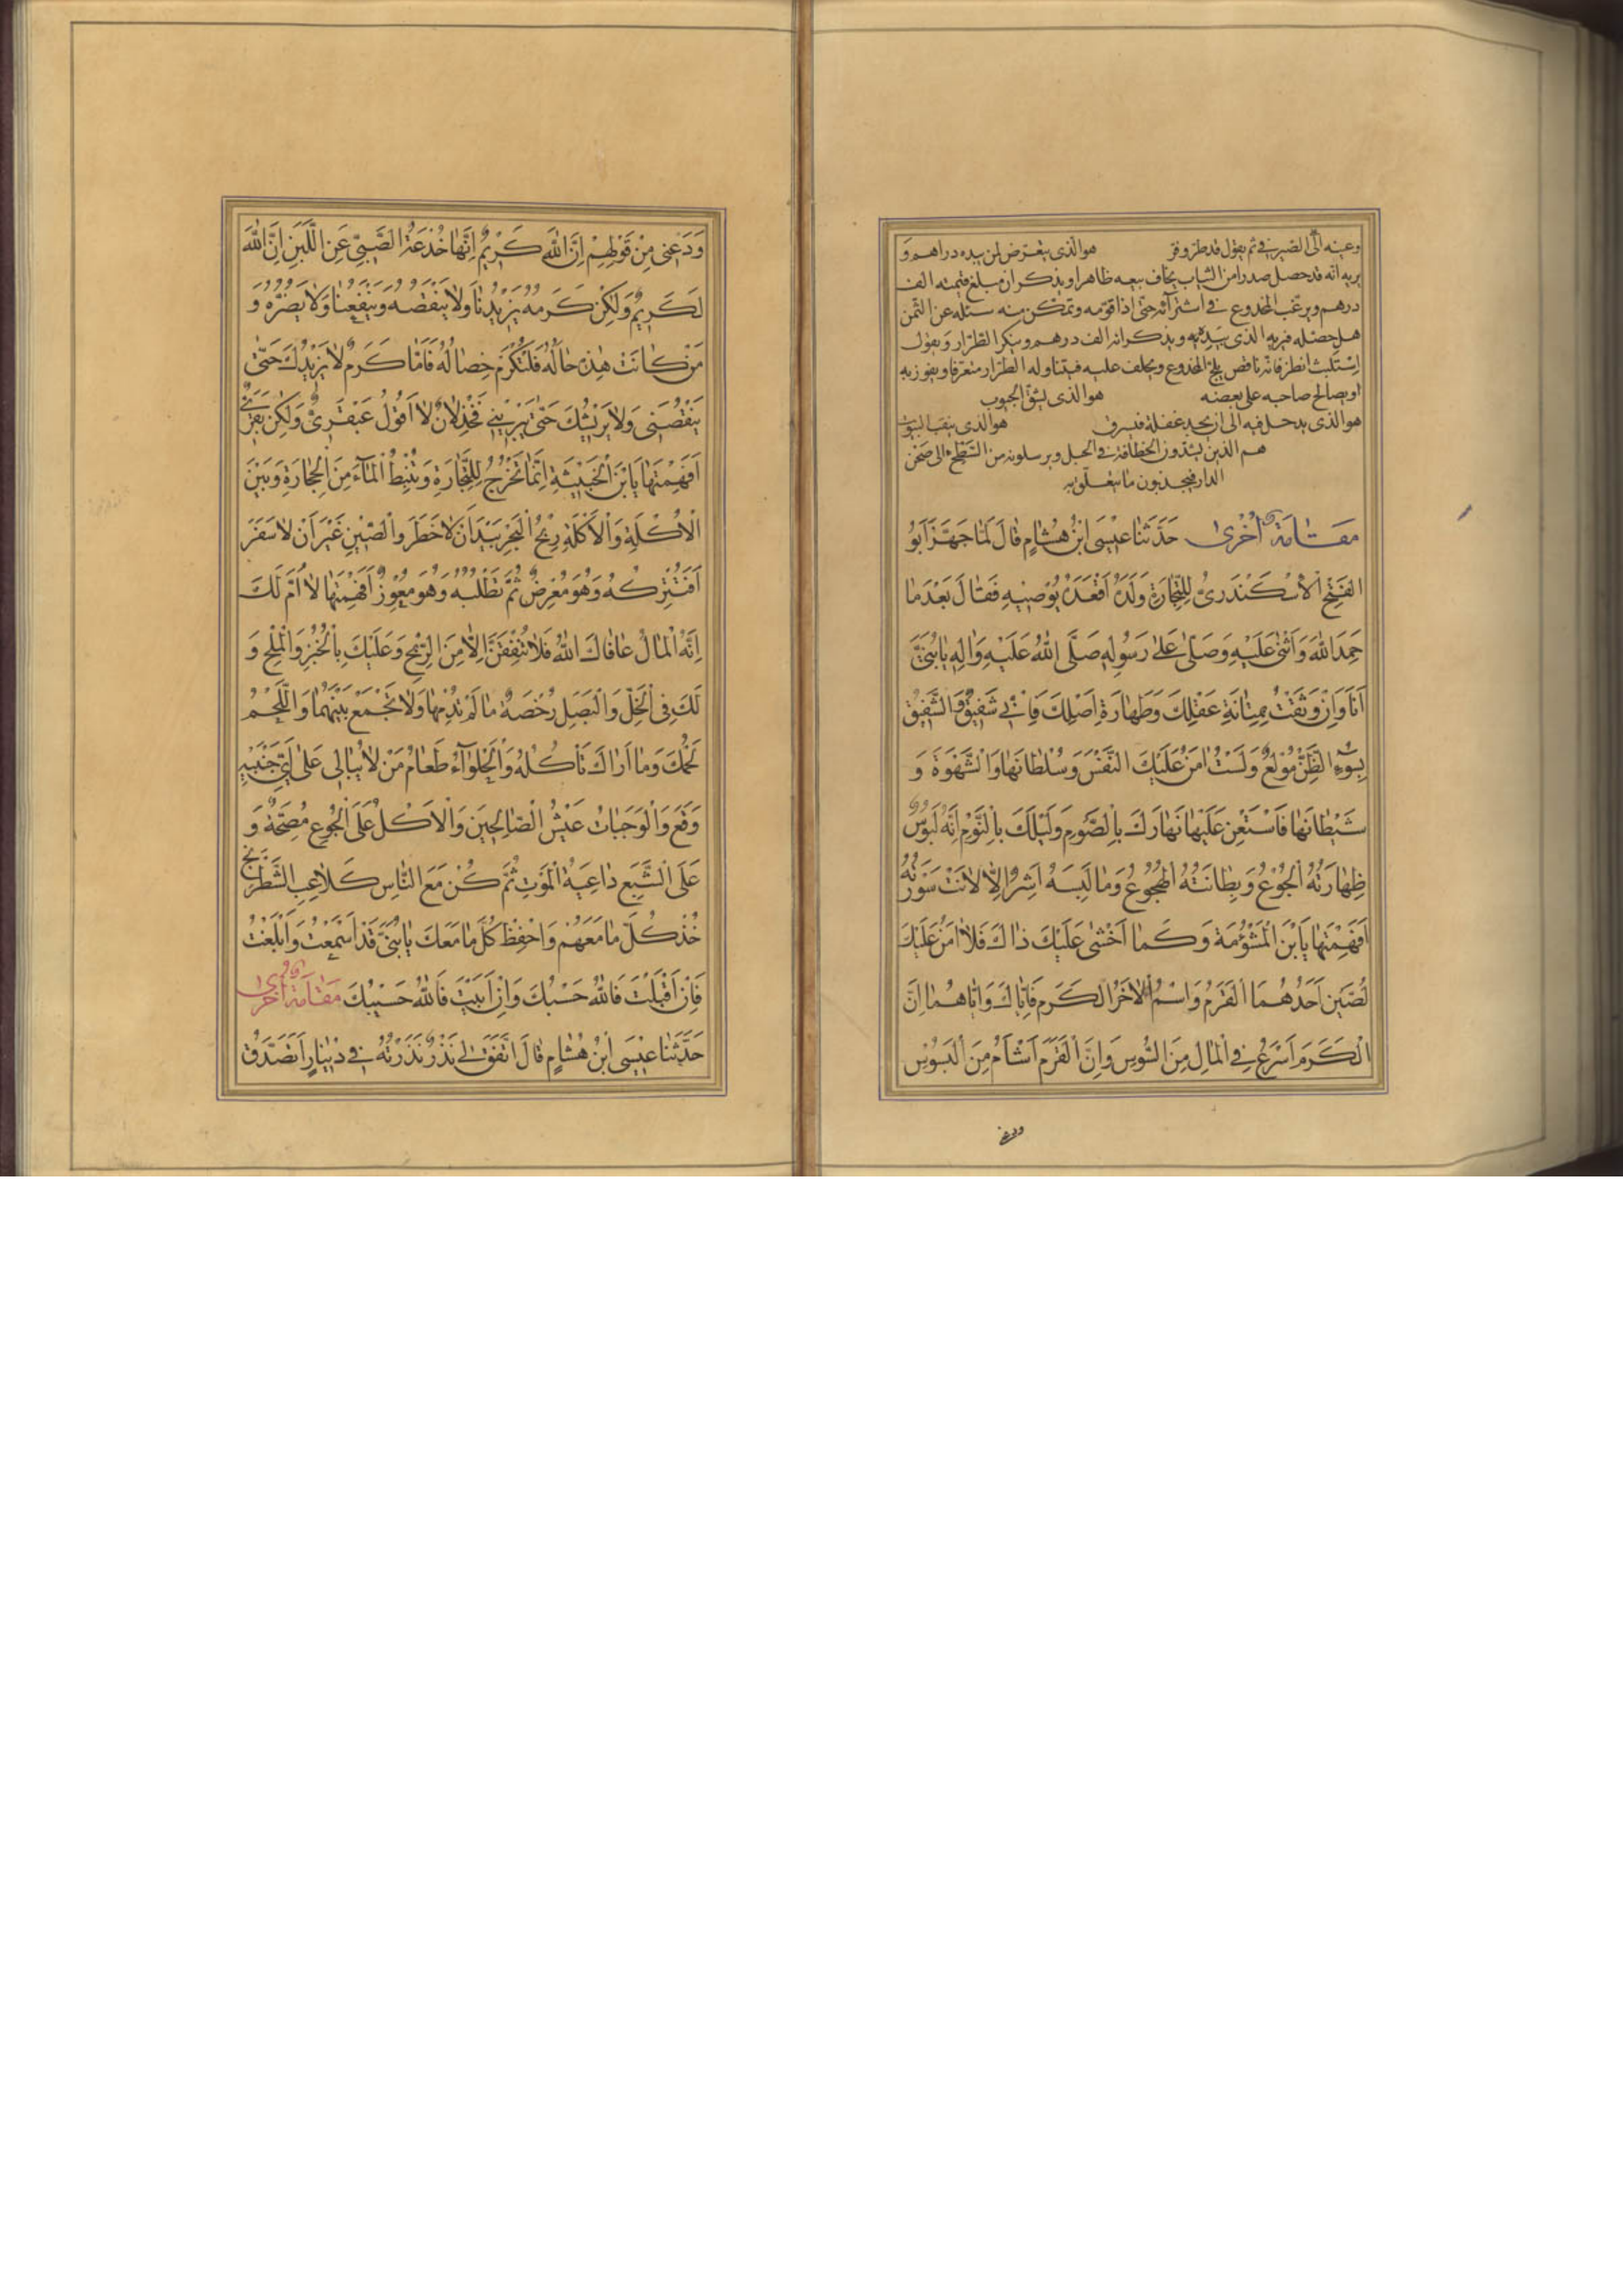 وعينه الى الصيرفي ثم يقول قد طر وفر هو الذى يتعرض لمن بيده دراهم و
يريه انه قد حصل صدرا من الثياب يخاف بيعه ظاهرا ويذكر ان مبلغ قيمته الف
درهم ويرغب المخدوع فى اشترائه حتى اذا قومه وتمكن منه سئله عن الثمن
هل حصله فيريه الذى بيده ويذكر انه الف درهم وينكر الطرار ويقول
فانه ناقص يلح المخدوع ويحلف عليه فيتناوله الطرار متعرفا ويفوز به
او يصالح صاحبه على بعضه هو الذى يشق الجيوب
هو الذى يدخل فيه الى ان يجد غفلة فيسرق هو الذى ينقب البيوت
هم الذين يشدون الخطافة فى الحبل ويرسلونه من السطح الى صحن
الدار فيجذبون ما يتعلق به
مَقَامَة اُخْرىٰ حَدَّثَنَا عِيْسَى ابْنُ هُشَامٍ قَالَ لَمَّا جَهَّزَ اَبُو
الفَتْحِ الْاِسْكَنْدَرىُّ لِلتِّجَارَةِ وَلَدَهُ اَقْعَدَهُ يُوْصِيْهِ فَقَالَ بَعْدَمَا
حَمِدَ اللّٰهَ وَاَثْنىٰ عَلَيْهِ وَصَلّىٰ عَلىٰ رَسُوْلِهِ صَلَّى اللّٰهُ عَلَيْهِ وَاٰلِهِ يَابُنَىَّ
اَنَا وَاِنْ وَثَقْتُ بِمِتَانَةِ عَقْلِكَ وَطَهَارَةِ اَصْلِكَ فَاِنّى شَفِيْقٌ وَالشَّفِيْقُ
بِسُوْءِ الظَّنِّ مُوْلَعٌ وَلَسْتُ اٰمَنُ عَلَيْكَ النَّفْسَ وَسُلْطَانَهَا وَالشَّهْوَةَ وَ
شَيْطَانَهَا فَاسْتَعِنْ عَلَيْهَا نَهَارَكَ بِالصَّوْمِ وَلَيْلَكَ بِالنَّوْمِ اِنَّهُ لَبُوْسٌ
ظِهَارَتُهُ الْجُوْعُ وَبِطَانَتُهُ الْهُجُوْعُ وَمَا لَبِسَهُ اَشِرٌ اِلَّا لَانَتْ سَوْرَتُهُ
اَفَهِمْتَهَا يَابْنَ الْمَشْؤُمَةِ وَكَمَا اَخْشىٰ عَلَيْكَ ذَاكَ فَلَا اٰمَنُ عَلَيْكَ
لُصَّيْنِ اَحَدُهُمَا الْقَرَمُ وَاسْمُ الْاٰخَرِ الْكَرَم فَاِيَّاكَ وَاِيَّاهُمَا اِنَّ
الْكَرَمَ اَسْرَعُ فِى الْمَالِ مِنَ السُّوْسِ وَاِنَّ الْقَرَمَ اَشْاَمُ مِنَ الْبَسُوْسِ
ودعنى
وَدَعْنِى مِنْ قَوْلِهِمْ اِنَّ اللّٰهَ كَرِيْمٌ اِنَّهَا خُدْعَةُ الصَّبِىِّ عَنِ اللَّبَنِ اِنَّ اللّٰهَ
لَكَرِيْمٌ وَلٰكِنْ كَرَمُهُ يَزِيْدُنَا وَلَا يَنْقُصُهُ وَيَنْفَعُنَا وَلَا يَضُرُّهُ وَ
مَنْ كَانَتْ هٰذِهِ حَالُهُ فَلْتَكْرُمْ خِصَالُهُ فَاَمَّا كَرَمٌ لَا يَزِيْدُكَ حَتّىٰ
يَنْقُصَنِى وَلَا يَرِيْشُكَ حَتّىٰ يَبْرِيَنِى فَخِذْلَانٌ لَا اَقُوْلُ عَبْقَرِىٌّ وَلٰكِنْ بَقَرِىٌّ
اَفَهِمْتَهَا يَابْنَ الْخَبِيْثَةِ اِنَّمَا تَخْرُجُ لِلتِّجَارَةِ وَتُنْبِطُ الْمَآءَ مِنَ الْحِجَارَةِ وَبَيْنَ
الْاُكْلَةِ وَالْاَكْلَةِ رِيْحُ الْبَحْرِ بَيْدَ اَنْ لَا خَطَرَ وَالصِّيْنِ غَيْرَ اَنْ لَا سَفَرَ
اَفَتَتْرُكُهُ وَهُوَ مُعْرِضٌ ثُمَّ تَطْلُبُهُ وَهُوَ مُعْوِزٌ اَفَهِمْتَهَا لَا اُمَّ لَكَ
اِنَّهُ الْمَالُ عَافَاكَ اللّٰهُ فَلَا تُنْفِقَنَّ اِلَّا مِنَ الرِّبْحِ وَعَلَيْكَ بِالْخُبْزِ وَالْمِلْحِ وَ
لَكَ فِى الْخَلِّ وَالْبَصَلِ رُخْصَةٌ مَا لَمْ تُدِمْهَا وَلَا تَجْمَعْ بَيْنَهُمَا وَاللَّحْمُ
لَحْمُكَ وَمَا اَرَاكَ تَأْكُلُهُ وَالْحَلْوَآءُ طَعَامُ مَنْ لَا يُبَالِى عَلىٰ اَىِّ جَنْبَيْهِ
وَقَعَ وَالْوَجَبَاتُ عَيْشُ الصَّالِحِيْنَ وَالْاَكْلُ عَلَى الْجُوْعِ مُصِحَّةٌ وَ
عَلَى الشَّبَعِ دَاعِيَةُ الْمَوْتِ ثُمَّ كُنْ مَعَ النَّاسِ كَلَاعِبِ الشَّطْرَنْجِ
خُذْ كُلَّ مَا مَعَهُمْ وَاحْفِظْ كُلَّ مَا مَعَكَ يَابُنَىَّ قَدْ اَسْمَعْتُ وَاَبْلَغْتُ
فَاِنْ اَقْبَلْتَ فَاللّٰهُ حَسْبُكَ وَاِنْ اَبَيْتَ فَاللّٰهُ حَسِيْبُكَ مَقَامَة اُخْرىٰ
حَدَّثَنَا عِيْسَى ابْنُ هُشَامٍ قَالَ اتَّفَقَ لِى نَذْرٌ نَذَرْتُهُ فِى دِيْنَارٍ اَتَصَدَّقُ